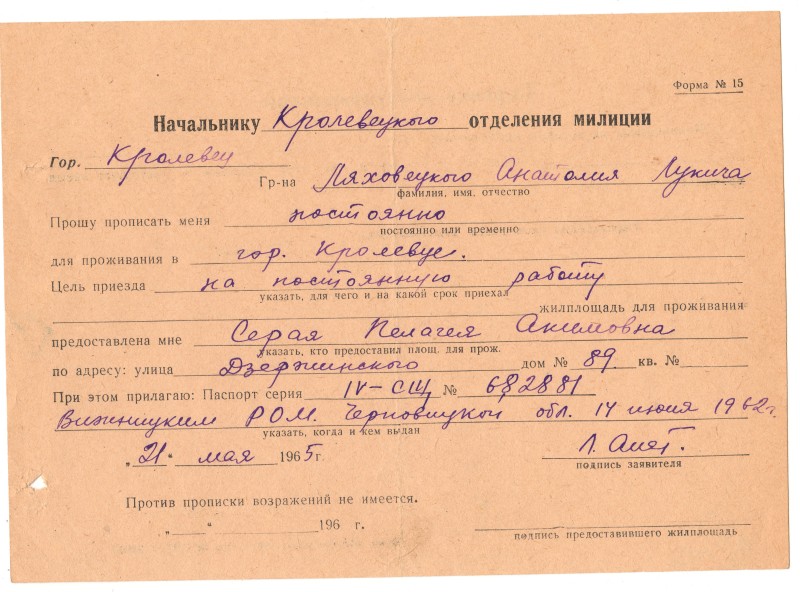 Форма № 15
Начальнику Кролевецкого отделения милиции
Гор. Кролевец
Гр-на Ляховецкого Анатолия Лукича
фамилия, имя, отчество
Прошу прописать меня постоянно
постоянно или временно
для проживания в гор. Кролевце.
Цель приезда на постоянную работу
указать, для чего и на какой срок приехал
жилплощадь для проживания
предоставлена мне Серая Пелагея Акимовна
указать, кто предоставил площ. для прож.
по адресу: улица Дзержинского дом № 89 кв. №
При этом прилагаю: Паспорт серия IV-СЩ № 682881
Вижницким РОМ. Черновицкой обл. 14 июня 1962г.
указать, когда и кем выдан
„21“ мая 1965г.
подпись заявителя
Против прописки возражений не имеется.
„ “ 196 г.
подпись предоставившего жилплощадь